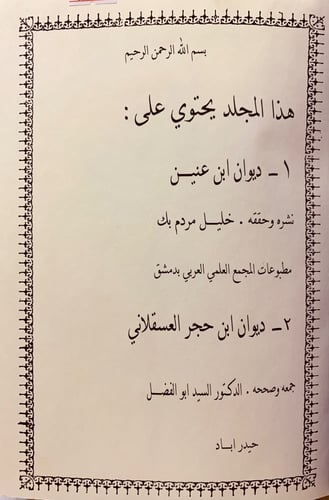 بسم الله الرحمن الرحيم
هذا المجلد يحتوي على :
١ ـ ديوان ابن عنين
نشره وحققه . خليل مردم بك
مطبوعات المجمع العلمي العربي بدمشق
٢ ـ ديوان ابن حجر العسقلاني
جمعه وصححه . الدكتور السيد ابو الفضل
حيدر اباد